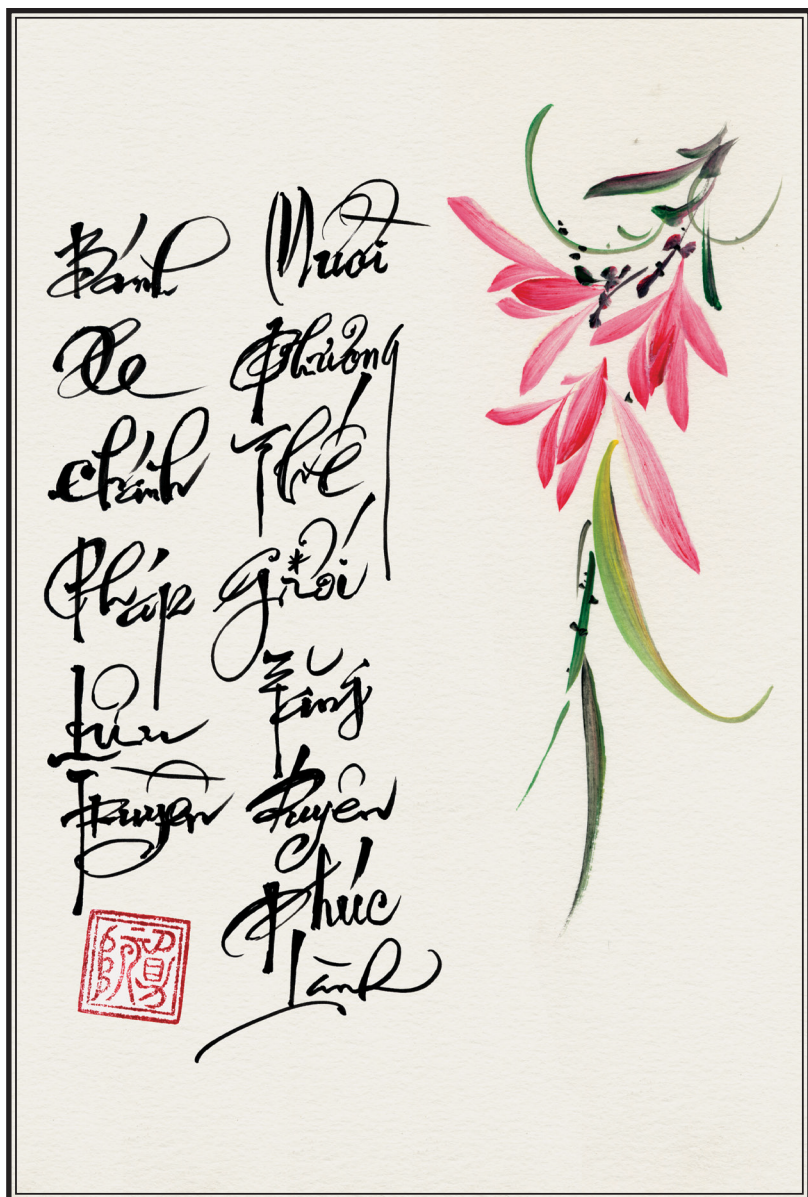 Bánh
Xe
Chánh
Pháp
Lưu
Truyền
Mười
Phương
Thế
Giới
Tăng
Duyên
Phúc
Lành